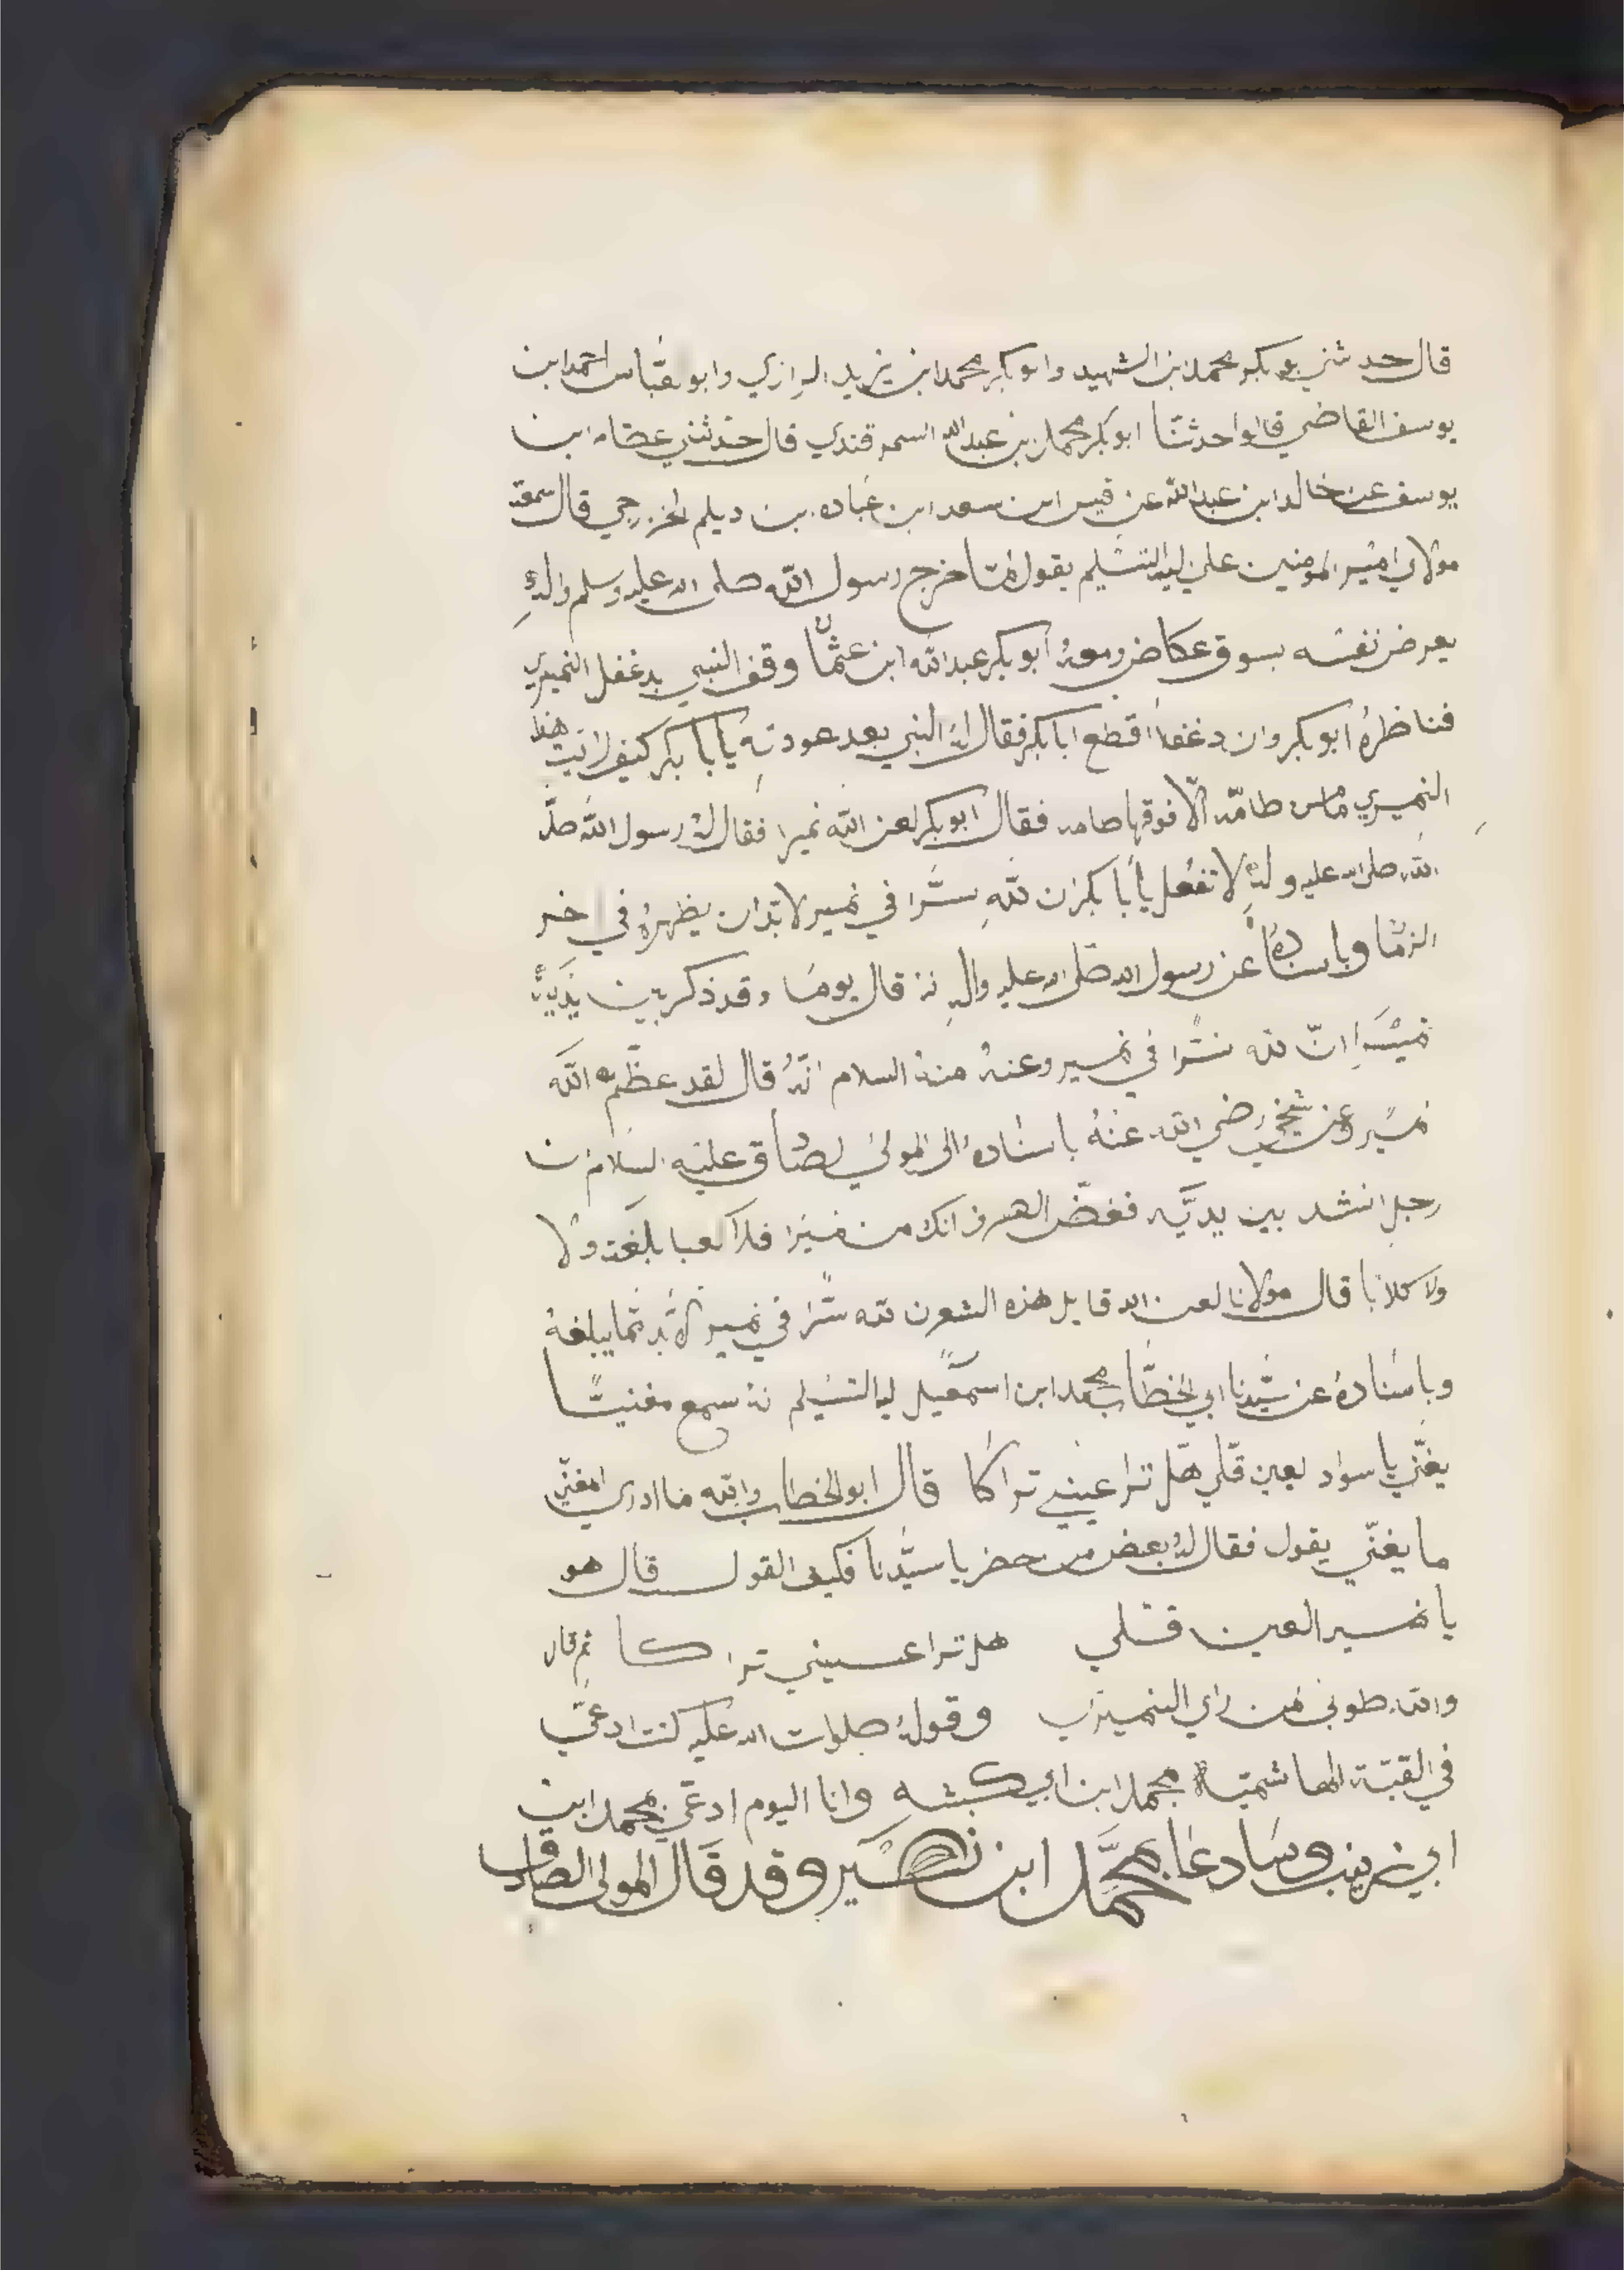 قال حدثني بو بكر محمد بن الشهيد وابو بكر محمد ابن يزيد الرازي وابو عباس احمد ابن
يوسف القاضي قالوا حدثنا ابو بكر محمد بن عبد الله السمرقندي قال حدثني عصام ابن
يوسف عن خالد ابن عبد الله عن قيس ابن سعد ابن عباده بن ديلم الخزرجي قال سمعت
مولاي امير المومنين علي ليه التسليم يقول لمّا خرج رسول الله صلى الله عليه وسلم واله
يعرض نفسه بسوق عكاض ومعهُ ابو بكر عبد الله ابن عثمان وقف النبي بدغفل النميري
فناظرهُ ابو بكر وان دغفلاً اقطع ابا بكر فقال لهُ النبي بعد عودته يا ابا بكر كيف رايت هذا
النميري مامن طامّه الّا فوقها طامه فقال ابو بكر لعن الله نميرا فقال لهُ رسول الله صلّ
لله صلى الله عليه واله لا تفعل يا ابا بكر ان لله سرّا في نمير لا بدّ ان يظهرهُ في اخر
الزمان وباسنادهُ عن رسول الله صلى الله عليه واله نه قال يومًا وقد ذكر بين يديهُ
نميرًا انّ لله سرّا في نمير وعنهُ منهُ السلام انّهُ قال لقد عظّم الله
نمير وعن شيخي رضي الله عنهُ باسنادهُ الى المولى لصادق عليه السلام ن
رجل انشد بين يديّه فغضّ الطرف انك من نميرا فلا كعبا بلغت ولا
ولا كلابا قال مولانا لعن الله قايل هذه الشعر ن لله سرّا في نمير لا بدّ مما يبلغهُ
وباسنادهُ عن سيّدنا ابي الخطّاب محمد ابن اسمعيل ليه التسليم نه سمع مغنيّا
يغنّي يا سواد لعين قلي هل ترا عيني تراكا قال ابو الخطاب والله ما ادري المغنّي
ما يغنّي يقول فقال لهُ بعض من حضر يا سيّدنا فكيف القول قال هو
يا نمير العين قلي هل ترا عيني تراكا ثم قال
والله طوبى لمن راي النميري وقولهُ صلوات الله عليه كنت ادعى
في القبّة الهاشميّة محمد ابن ابي كبشه وانا اليوم ادعى محمد ابن
ابي زينب وسادعا محمَّد ابن نصَير وقد قال المولى الصادق